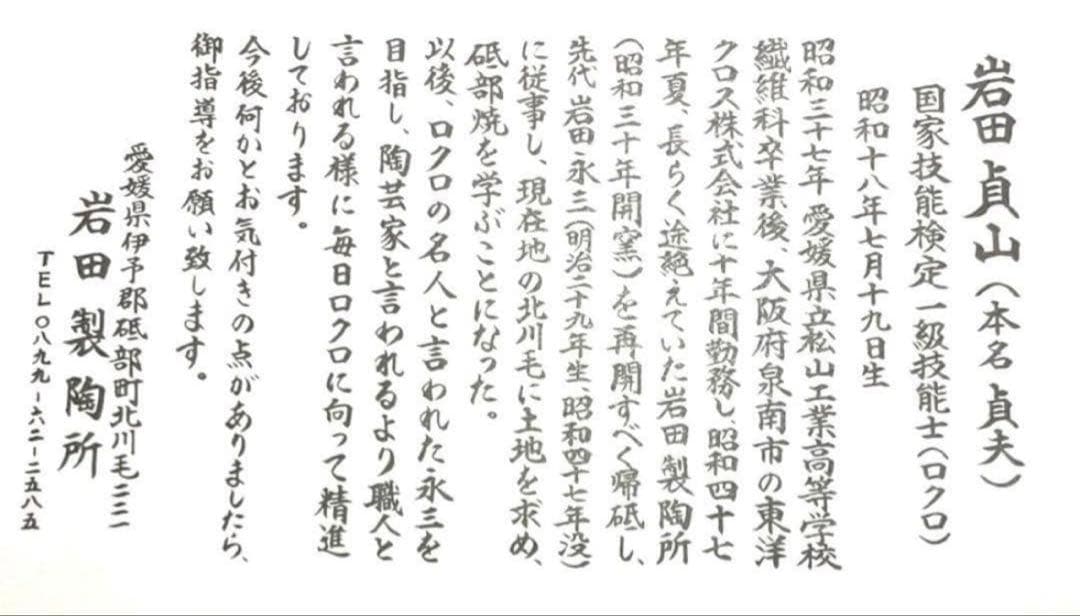 岩田貞山(本名 貞夫)
国家技能検定一級技能士(ロクロ)
昭和十八年七月十九日生
昭和三十七年 愛媛県立松山工業高等学校
繊維科卒業後、大阪府泉南市の東洋
クロス株式会社に十年間勤務し、昭和四十七
年夏、長らく途絶えていた岩田製陶所
(昭和三十年開窯)を再開すべく帰砥し、
先代 岩田永三(明治二十九年生、昭和四十七年没)
に従事し、現在地の北川毛に土地を求め、
砥部焼を学ぶことになった。
以後、ロクロの名人と言われた永三を
目指し、陶芸家と言われるより職人と
言われる様に毎日ロクロに向って精進
しております。
今後何かとお気付きの点がありましたら、
御指導をお願い致します。
愛媛県伊予郡砥部町北川毛二二一
岩田製陶所
TEL〇八九九-六二-二五八五